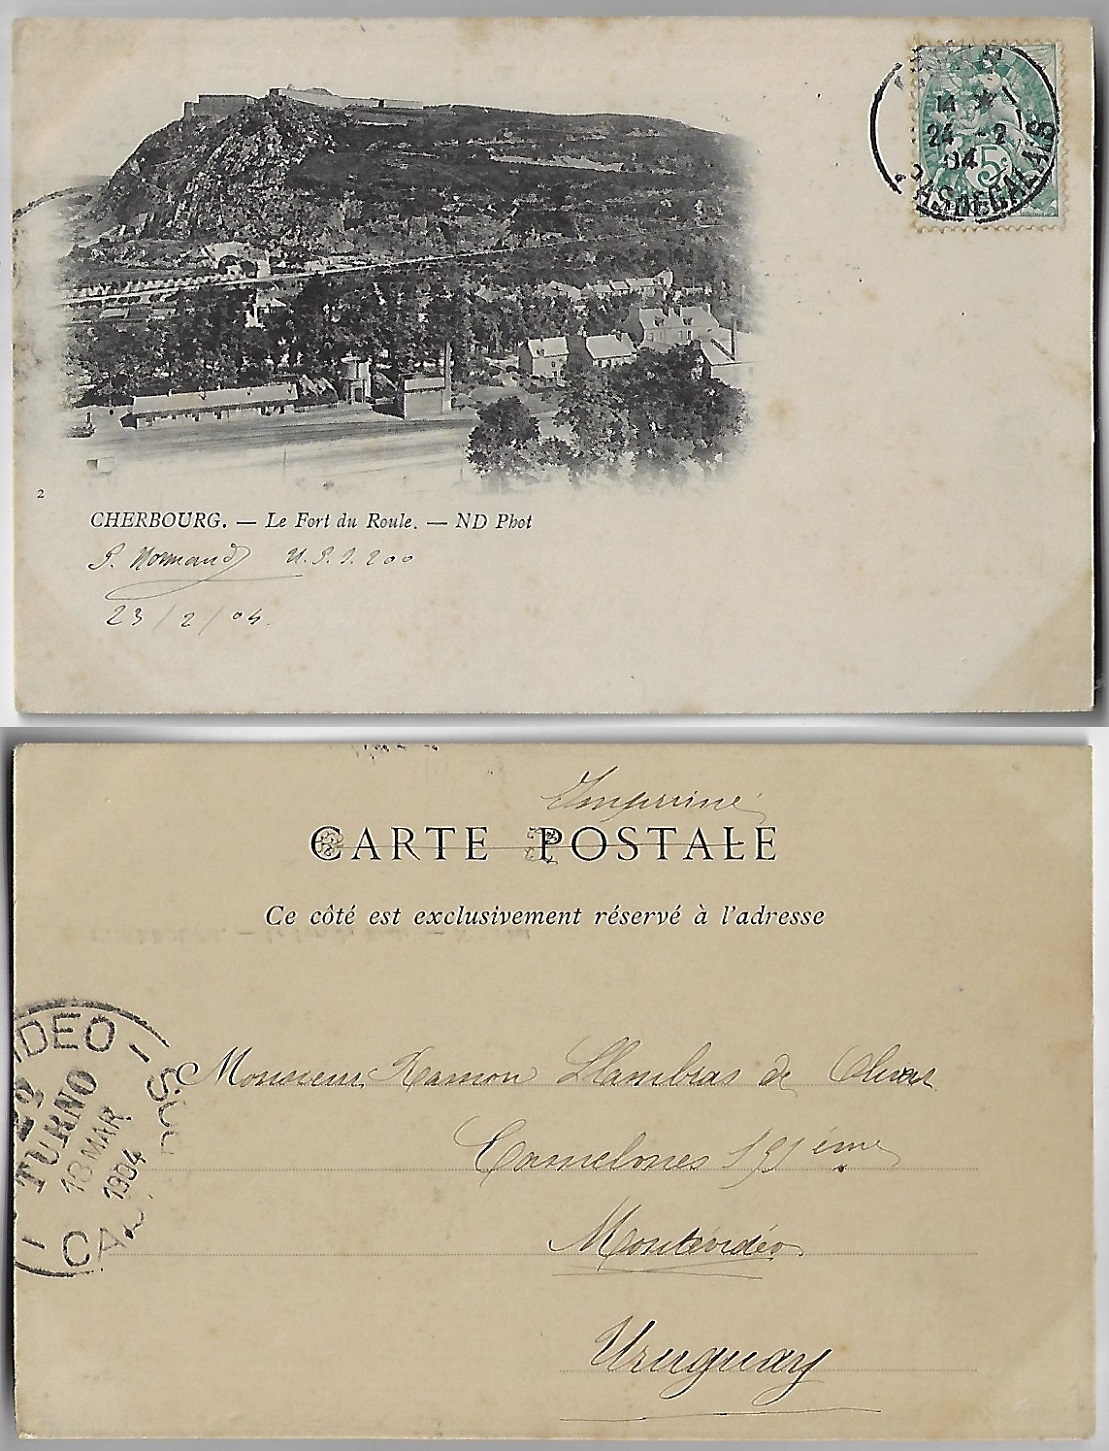 14 * 1
24 - 2
04
PAS DE CALAIS
5
2
CHERBOURG. — Le Fort du Roule. — ND Phot
Normand U.S.I. 200
23/2/04.
Imprimé
CARTE POSTALE
Ce côté est exclusivement réservé à l'adresse
IDEO
TURNO
18 MAR
1904
Monsieur Ramon Llambias de Olivar
Montévidéo
Uruguay